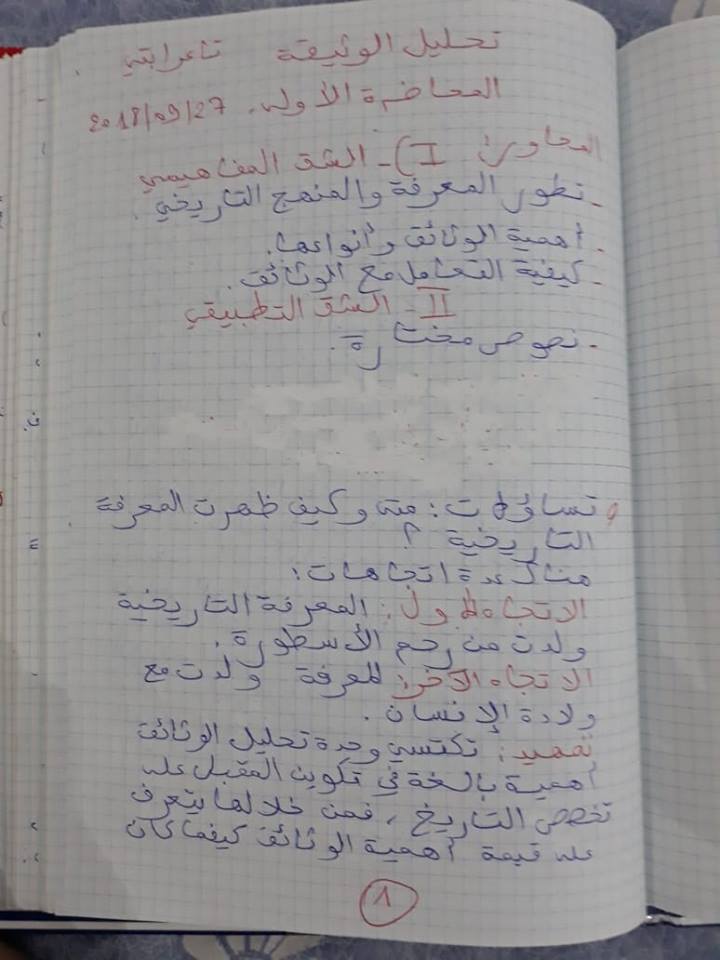 تحليل الوثيقة تاعرابتي.
المحاضرة الأولى. 2018/09/27
المحاور: I) - الشق المفاهيمي
- تطور المعرفة والمنهج التاريخي.
- أهمية الوثائق وأنواعها.
- كيفية التعامل مع الوثائق.
II - الشق التطبيقي
- نصوص مختارة.
تساؤلات: متى وكيف ظهرت المعرفة
التاريخية ؟
هناك عدة اتجاهات:
الاتجاه الأول: المعرفة التاريخية
ولدت من رحم الأسطورة.
الاتجاه الآخر: المعرفة ولدت مع
ولادة الإنسان.
تمهيد: تكتسي وحدة تحليل الوثائق
أهمية بالغة في تكوين المقبل على
تخصص التاريخ، فمن خلالها يتعرف
على قيمة أهمية الوثائق كيفما كان
1